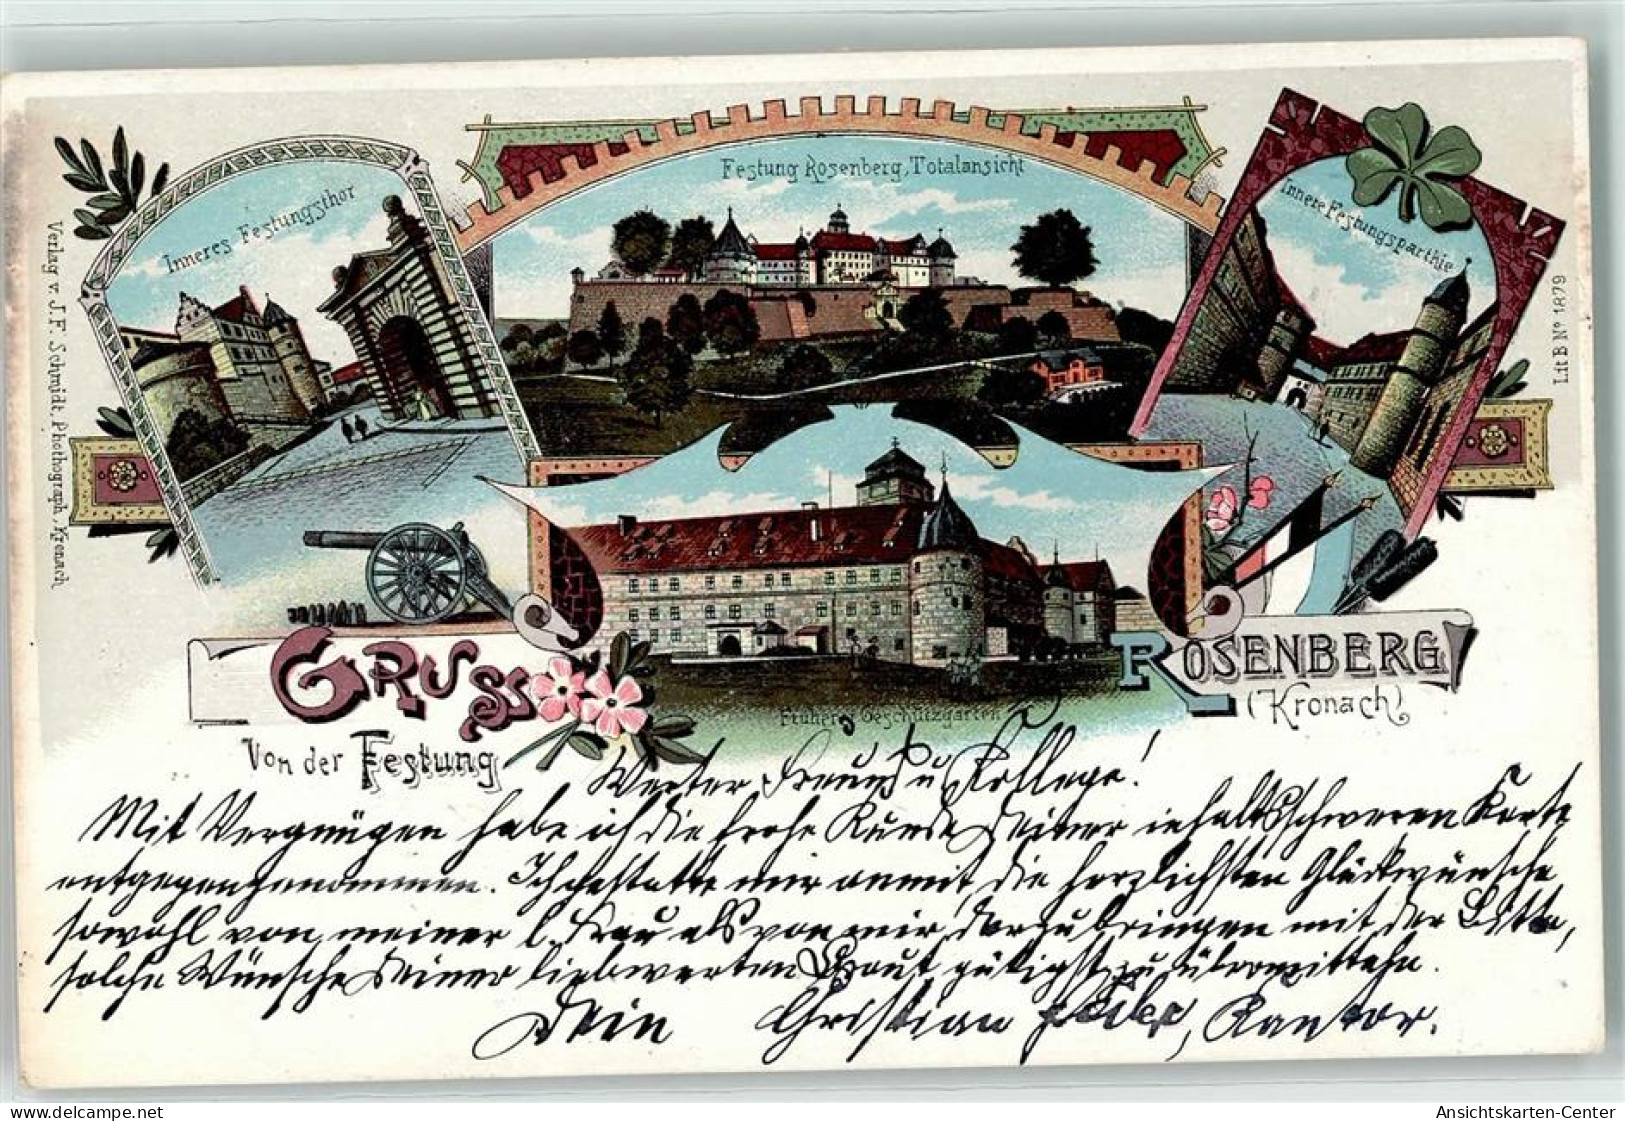 Festung Rosenberg, Totalansicht
Inneres Festungsthor
Innere Festungsparthie
Verlag v. J. F. Schmidt, Photograph, Kronach
Lit B No 1879
Früherer Geschützgarten
GRUSS
Von der Festung
ROSENBERG
(Kronach)
Werter Freund u. Kollege!
Mit Vergnügen habe ich die frohe Kunde Deiner inhaltsschweren Karte
entgegengenommen. Ich gestatte mir anmit, die herzlichsten Glückwünsche
sowohl von meiner l. Frau als von mir, darzubringen mit der Bitte,
solche Wünsche Deiner liebwerten Braut gütigst zu übermitteln.
Dein Christian Kantor.
delcampe.net
Ansichtskarten-Center